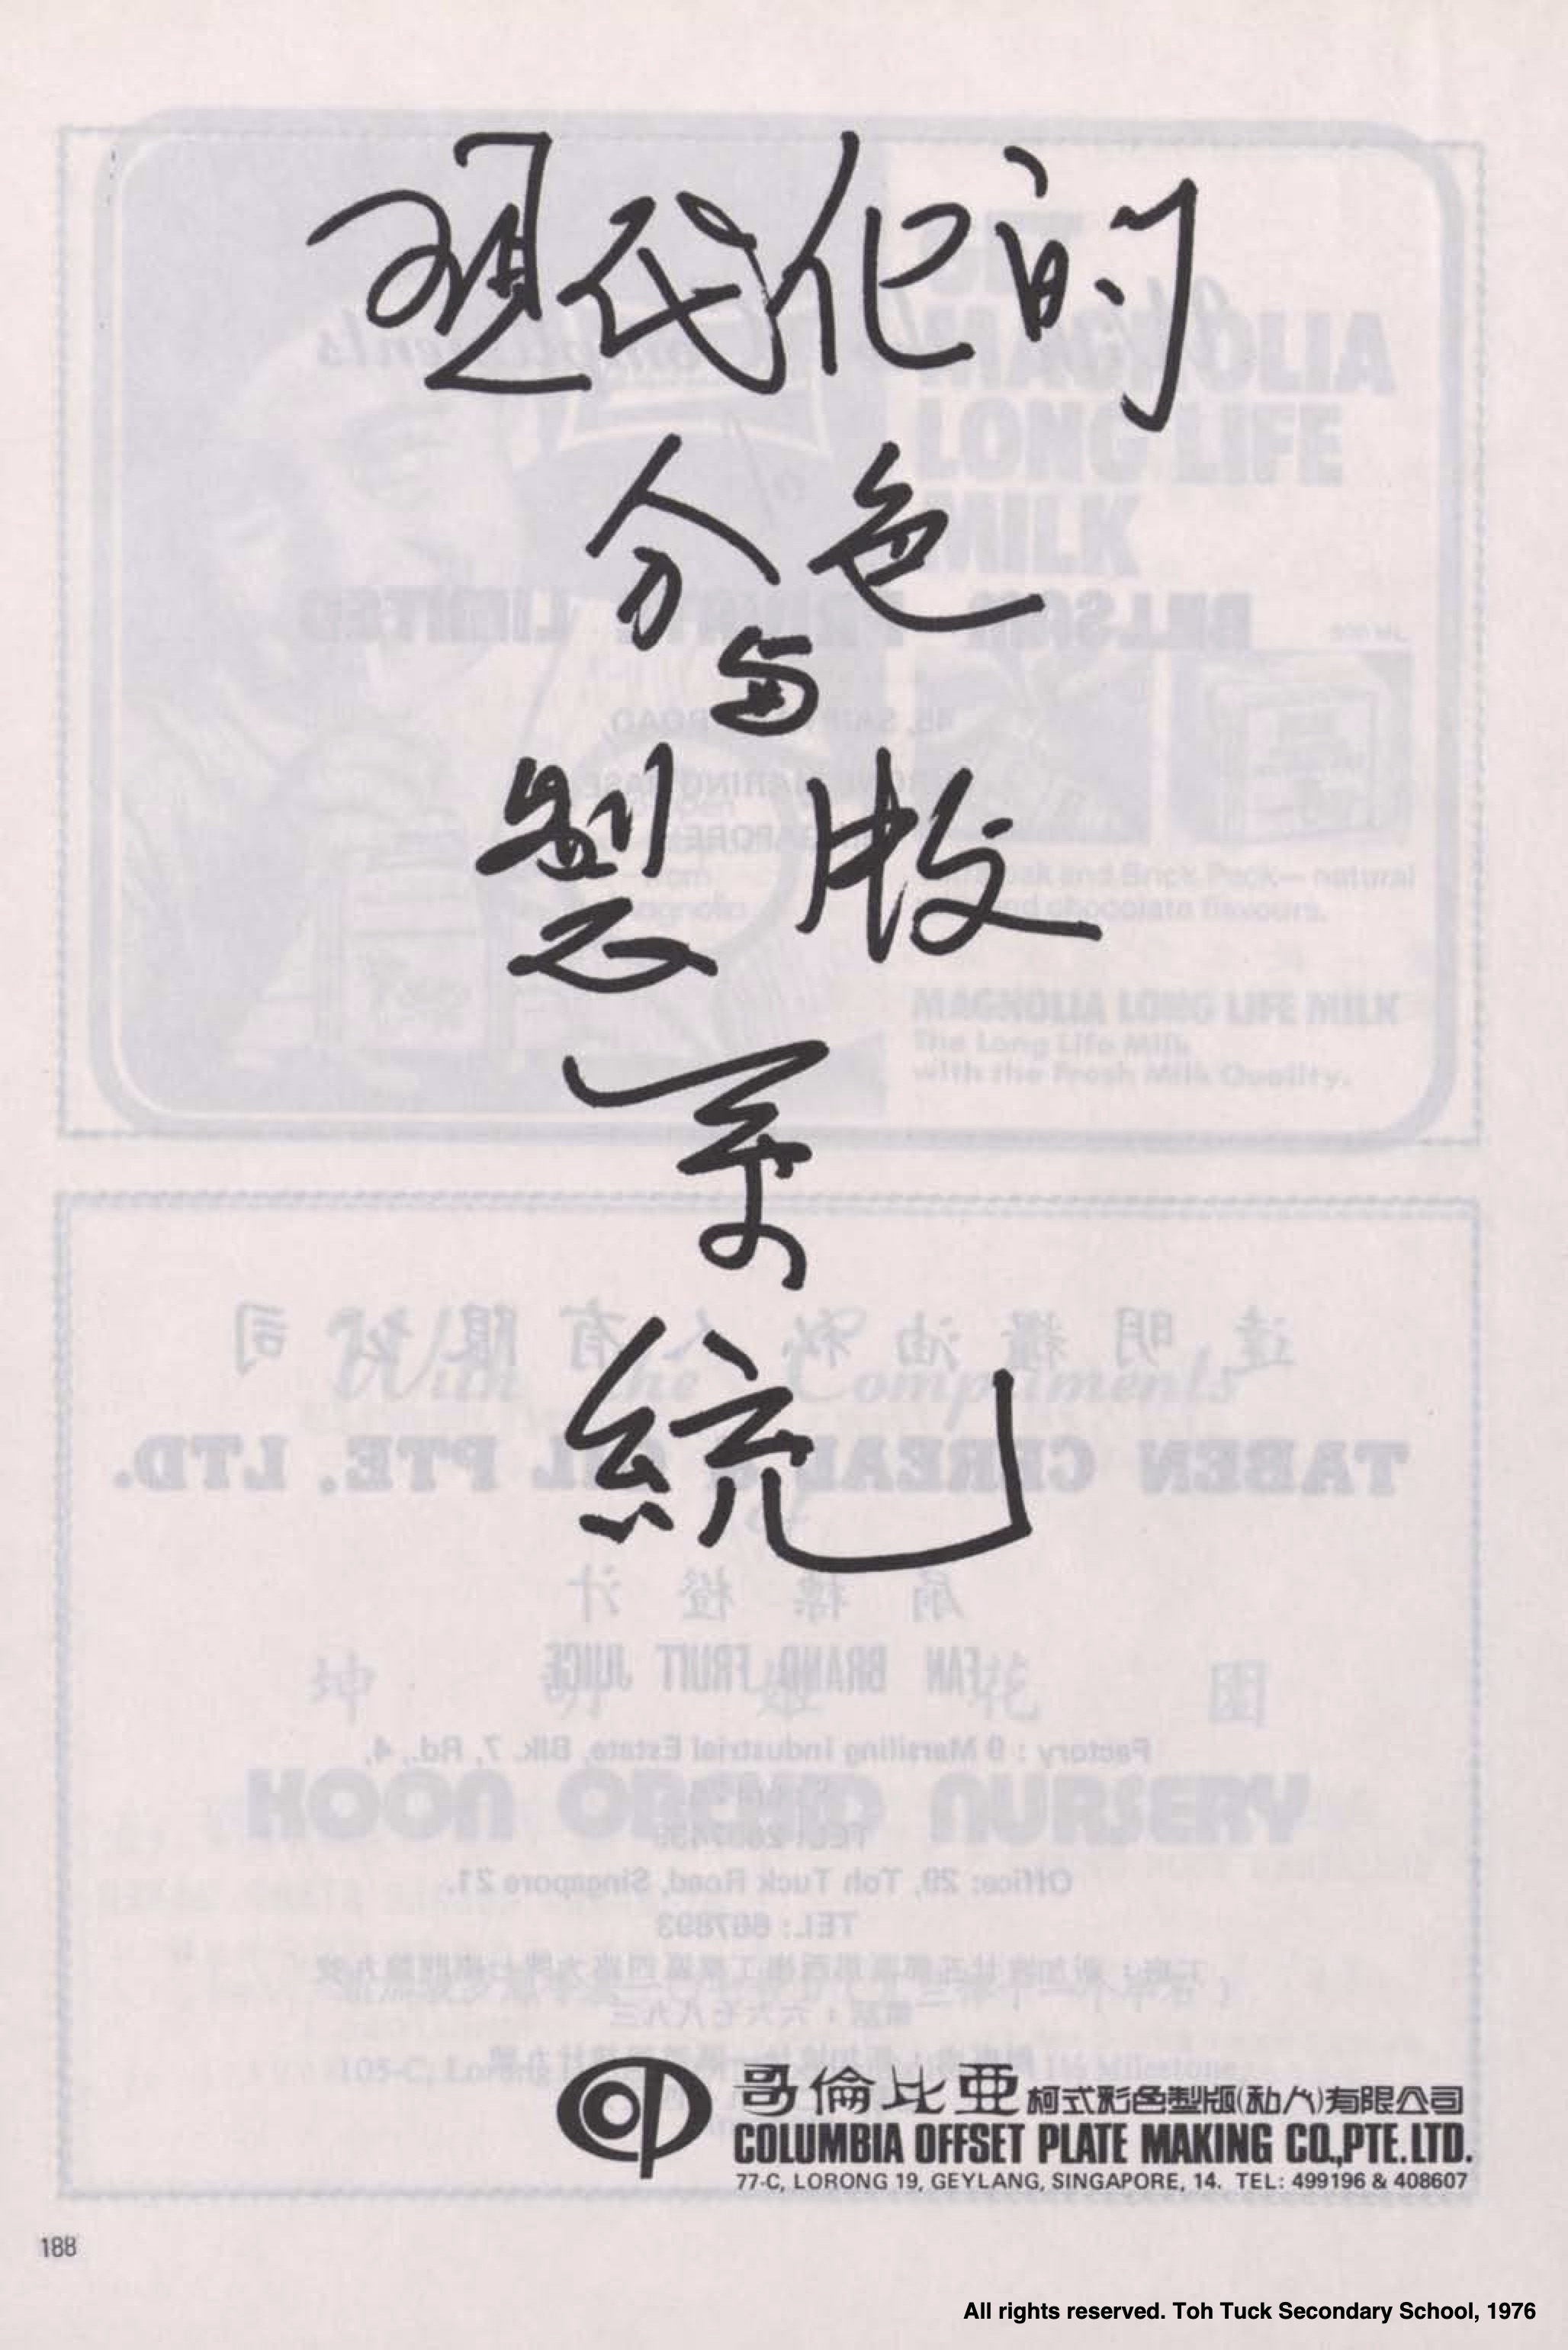 现代化的
分色
与
製版
系
統
哥倫比亞柯式彩色製版(私人)有限公司
COLUMBIA OFFSET PLATE MAKING CO.,PTE.LTD.
77-C, LORONG 19, GEYLANG, SINGAPORE, 14. TEL: 499196 & 408607
188
All rights reserved. Toh Tuck Secondary School, 1976